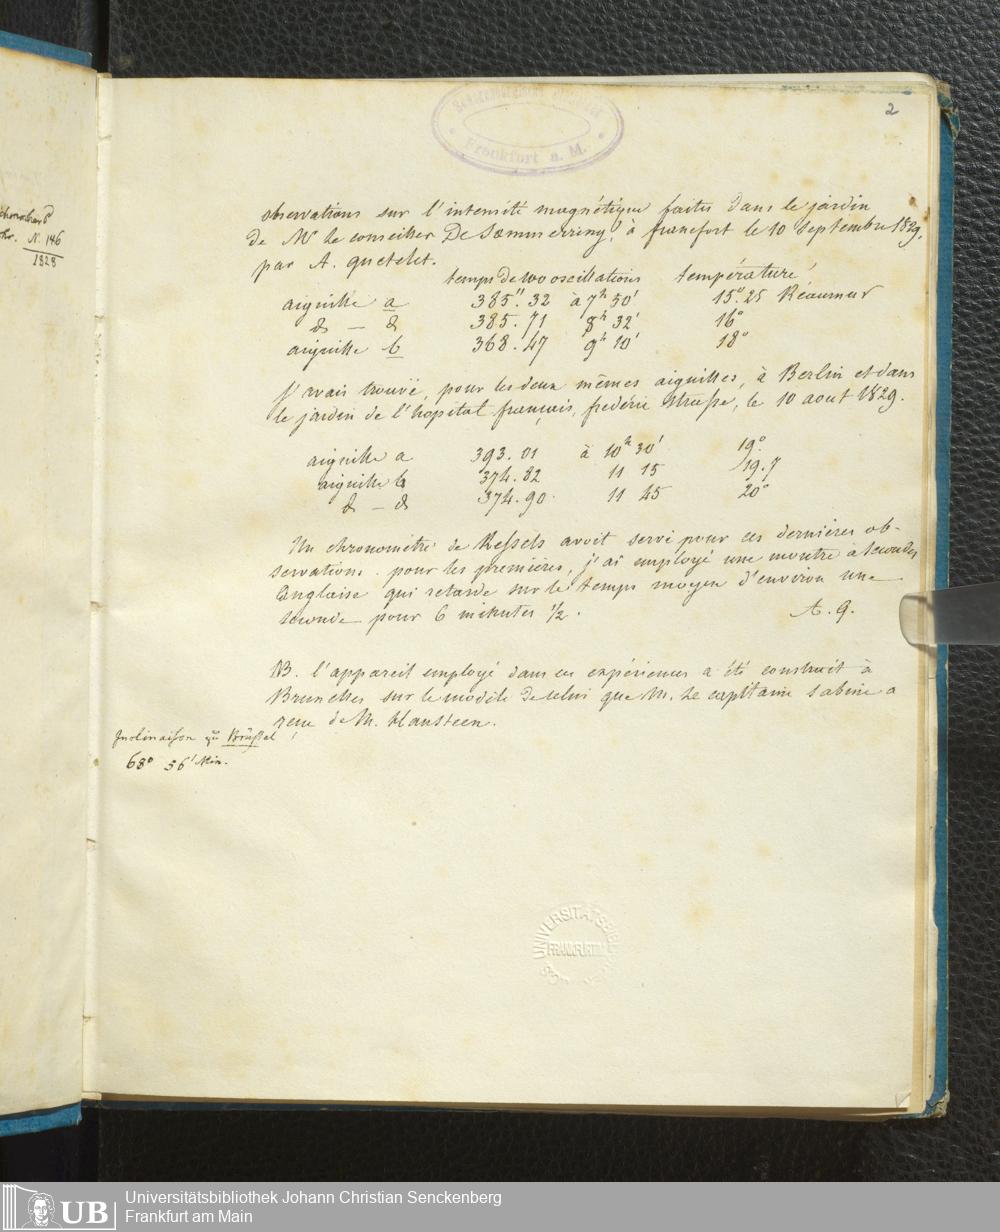 2
Frankfurt a. M.
observations sur l'intensité magnétique faites dans le jardin
de Mr le conseiller De Sœmmerring, à francfort le 10 septembre 1829.
par A. quetelet.
temps de 100 oscillations température
aiguille a 385". 32 à 7h 50' 15°.25 Réaumur
d — d 385. 71 8h 32' 16°
aiguille b 368. 47 9h 10' 18°
J'avais trouvé, pour les deux mêmes aiguilles, à Berlin et dans
le jardin de l'hopital français, frederic strasse, le 10 aout 1829.
aiguille a 393. 01 à 10h 30' 19°.
aiguille b 374. 82 11 15 19.7
d — d 374. 90. 11 45 20°
Un chronomètre de Kessels avoit servi pour ces dernières ob-
servations. pour les premières, j'ai employé une montre à secondes
anglaise qui retarde sur le temps moyen d'environ une
seconde pour 6 minutes 1/2. A. Q.
NB. l'appareil employé dans ces expériences a été construit à
Bruxelles sur le modèle de celui que M. Le capitaine Sabine a
reçu de M. Hansteen.
Inclinaison zu Brüssel
68° 56' Min.
N. 146
1828
UNIVERSITÄTSBIBL
FRANKFURT
Universitätsbibliothek Johann Christian Senckenberg
Frankfurt am Main
UB